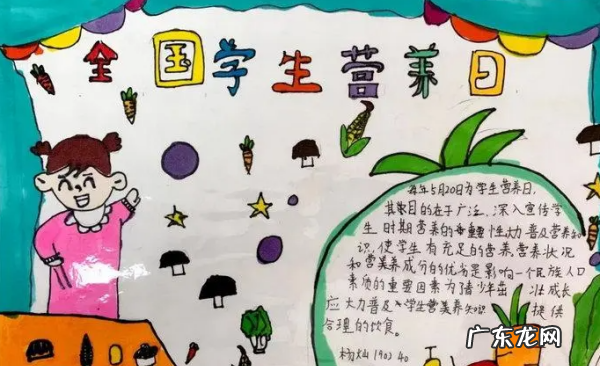 全国学生营养日
每年5月20日为学生营养日,
其目的在于广泛、深入宣传学
生时期营养的重要性,大力普及营养知
识,使学生有充足的营养,营养状况
和营养成分的优劣是影响一个民族人口
素质的重要因素为请少年 壮成长
应大力普及学生营养知识 提供
合理的饮食。
杨灿 190240
广东龙网